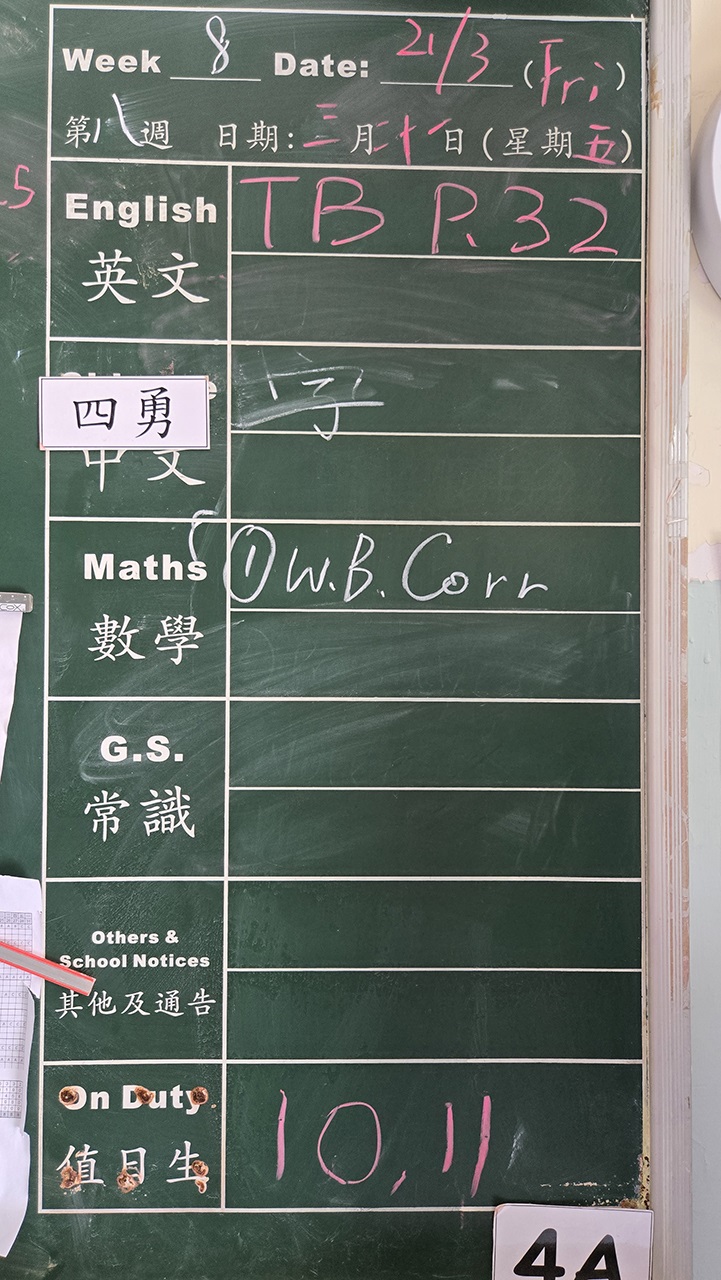 Week 8 Date: 21/3 (Fri)
第八週 日期:三月二十一日(星期五)
.5
English TB P.32
英文
四勇
字
中文
Maths ①W.B. Corr
數學
G.S.
常識
Others &
School Notices
其他及通告
On Duty 10,11
值日生
4A